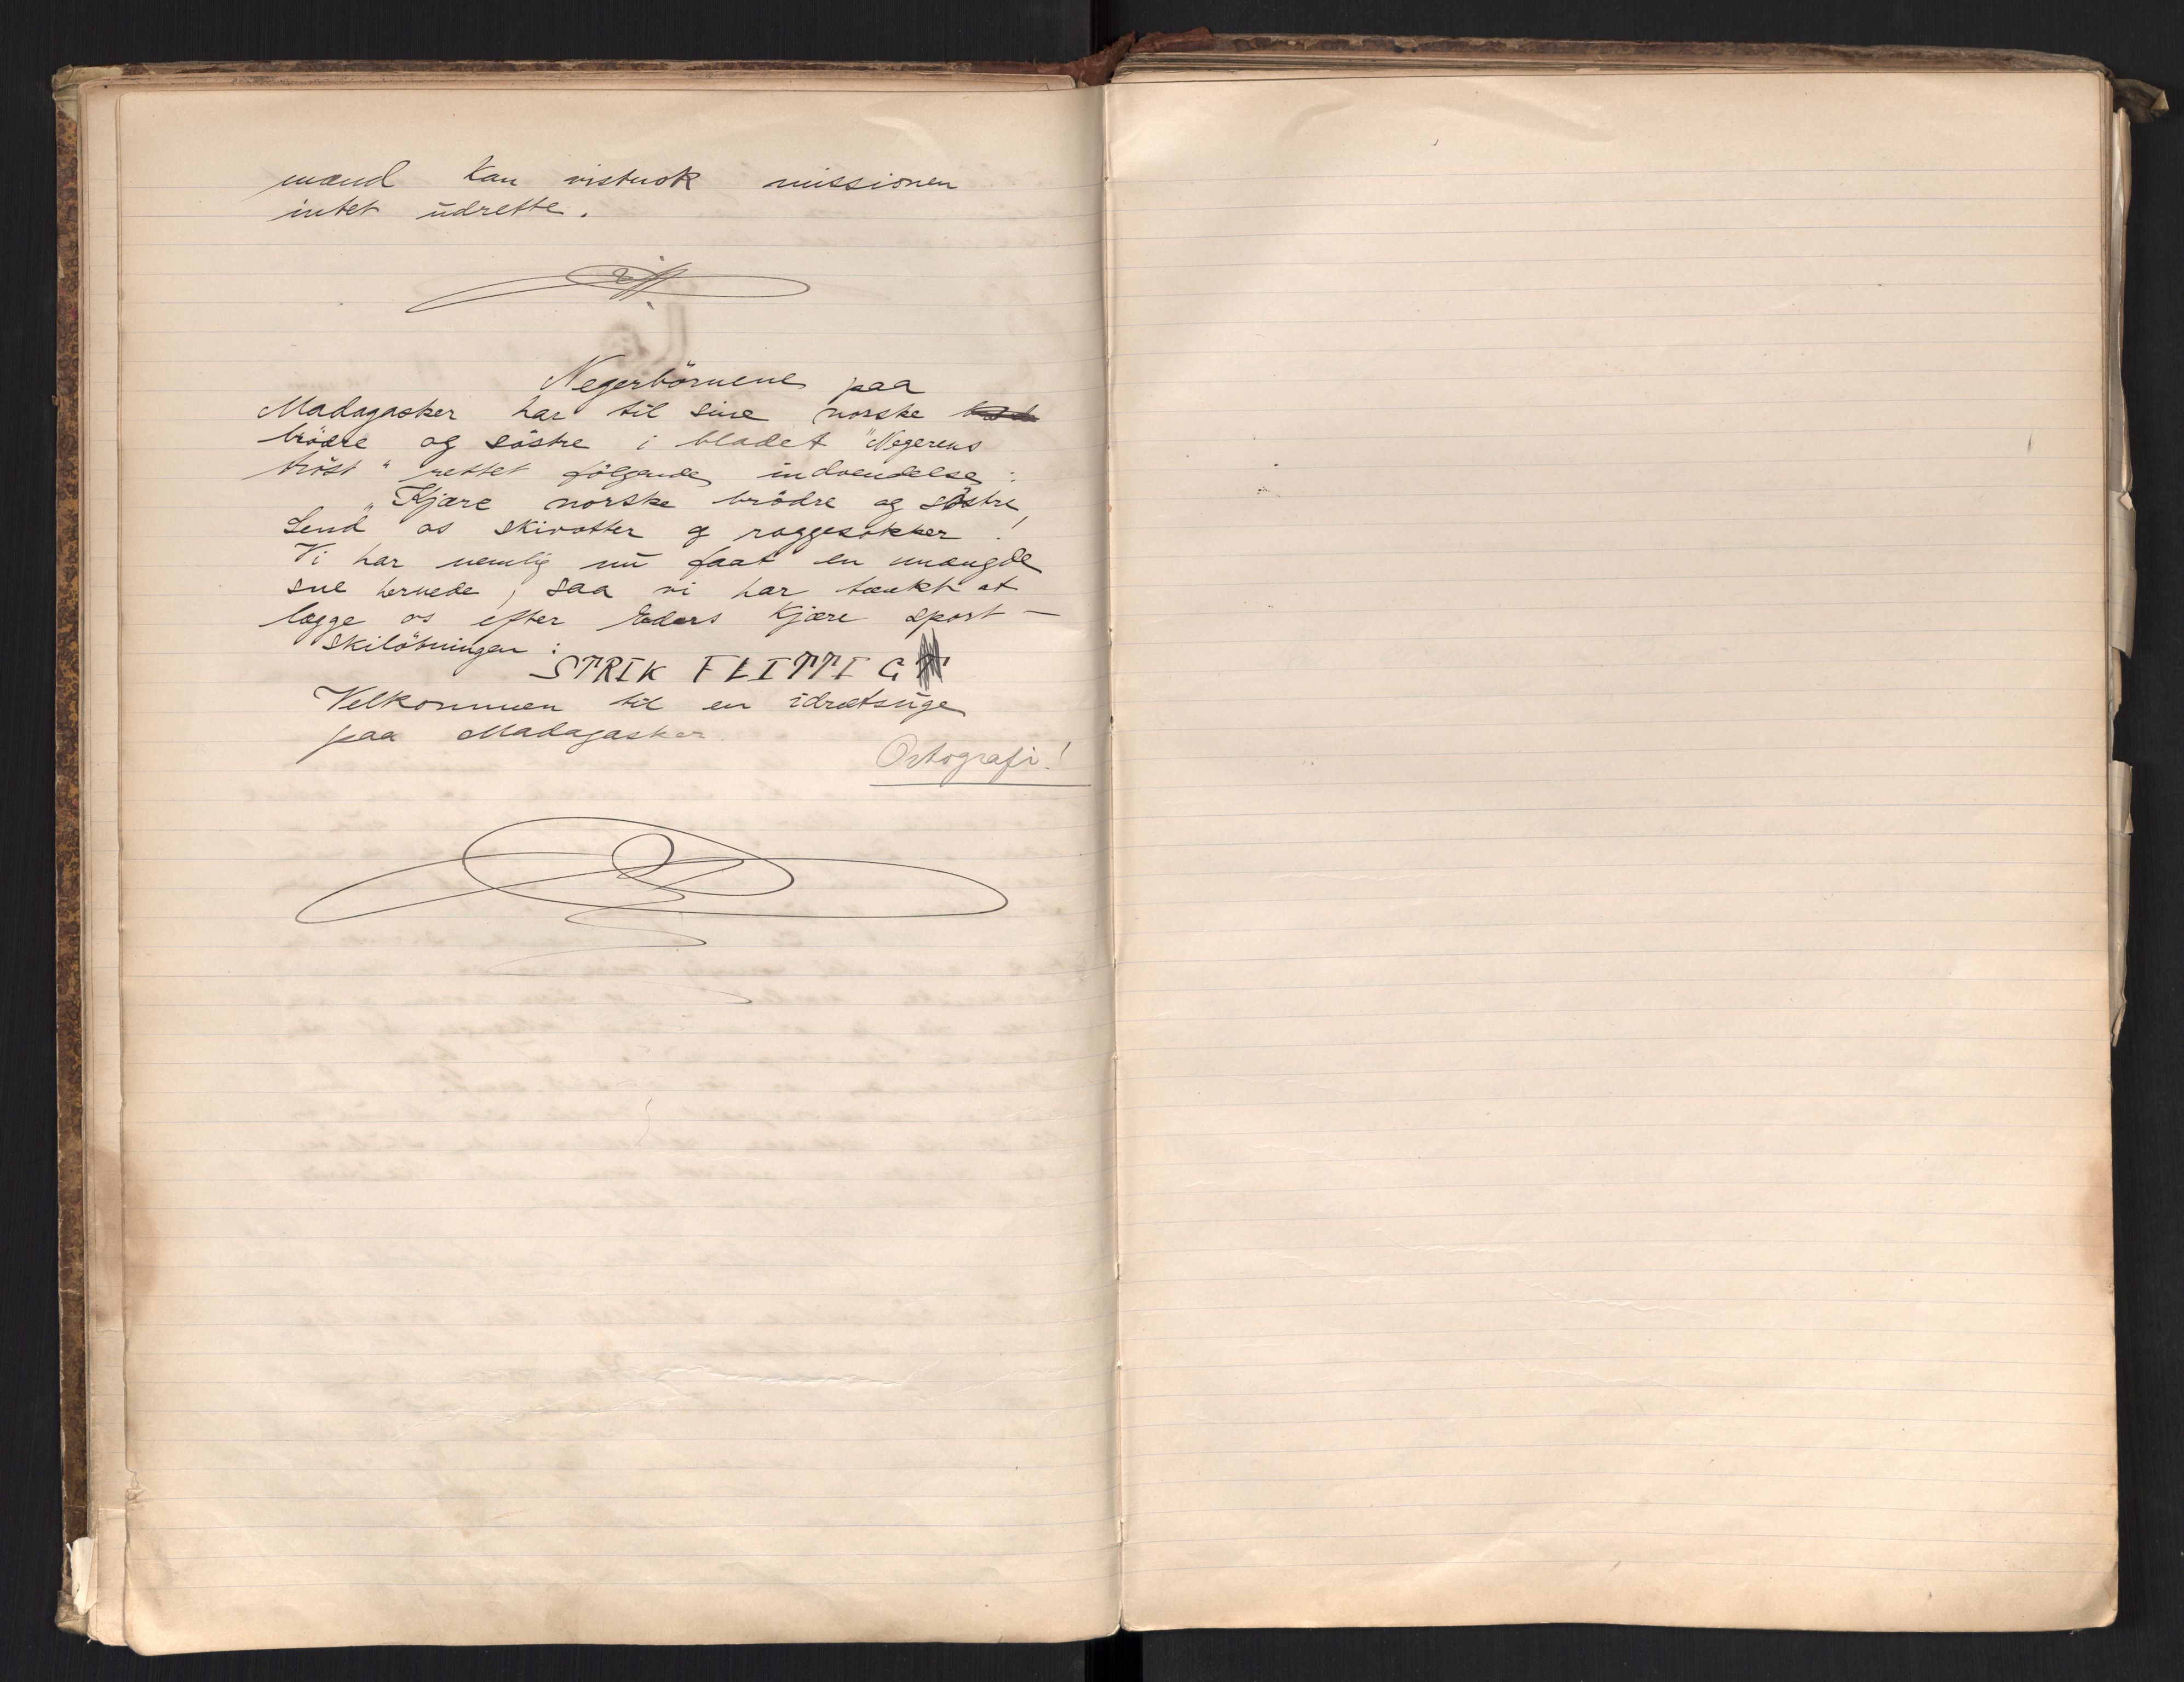 mænd kan vistnok missionen
intet udrette.
Negerbörnene paa
Madagasker har til sine norske
brödre og söstre i bladet "Negerens
tröst" rettet fölgende indvendelse:
"Kjære norske brödre og söstre,
Send os skivotter og raggesokker!
Vi har nemlig nu faat en mængde
sne hernede, saa vi har tænkt at
lægge os efter Eders kjære sport –
skilöbningen:
STRIK FLITTIG
Velkommen til en idrætsuge
paa Madagasker.
Ortografi!